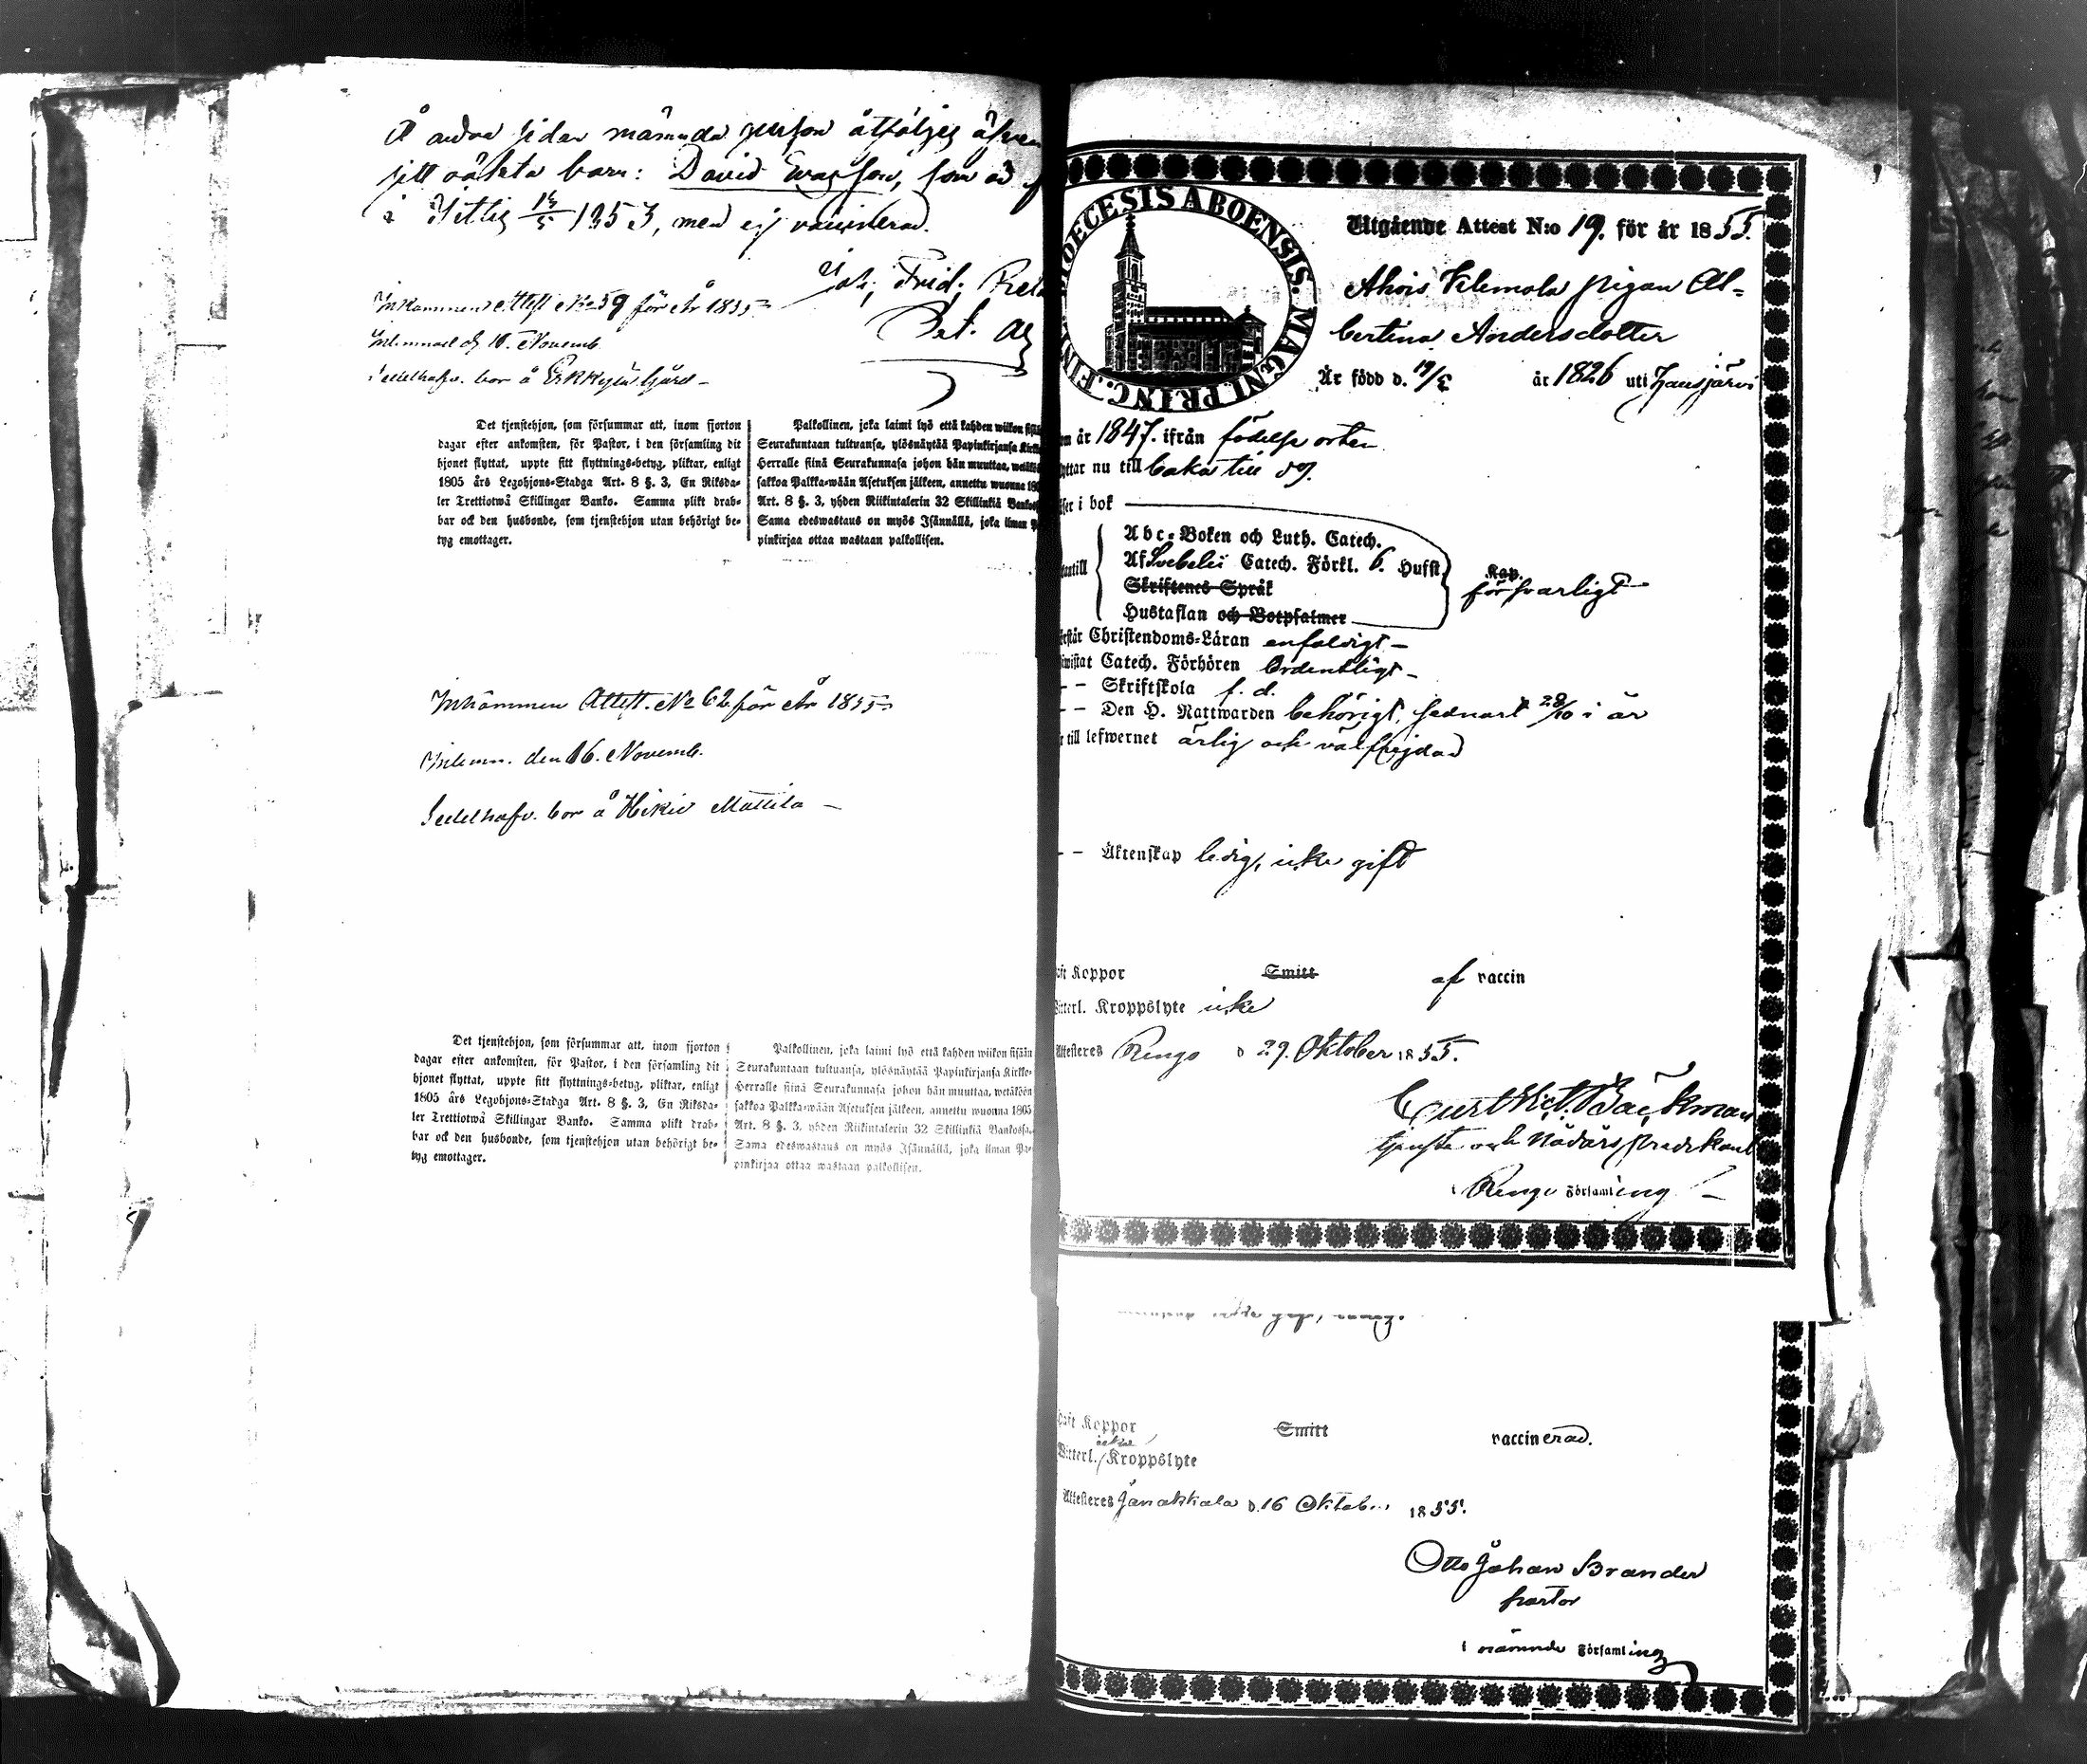 Å andra sidan nämnda person åtföljes äfven
sitt oäkta barn: David Evasson, som är
i Hittis 1853, men ej vaccinerad.
Joh. Frid.
Inkommen Attest No 59 för År 1855
Inlemnad d 10. Novemb
Sedelhafv. bor å Erkkylä Gård –
Det tjenstehjon, som försummar att, inom fjorton
dagar efter ankomsten, för Pastor, i den församling dit
hjonet flyttat, uppte sitt flyttnings-betyg, pliktar, enligt
1805 års Legohjons-Stadga Art. 8 §. 3, En Riksda-
ler Trettiotwå Skillingar Banko. Samma plikt drab-
bar ock den husbonde, som tjenstehjon utan behörigt be-
tyg emottager.
Palkollinen, joka laimi lyö että kahden wiikon sisään
Seurakuntaan tultuansa, ylösnäytää Papinkirjansa Kirkko-
Herralle siinä Seurakunnasa johon hän muuttaa, wetäköön
sakkoa Palkka-wään Asetuksen jälkeen, annettu wuonna 1805
Art. 8 §. 3, yhden Riikintalerin 32 Skillinkiä Bankossa.
Sama edeswastaus on myös Isännällä, joka ilman Pa-
pinkirjaa ottaa wastaan palkollisen.
Inkommen Attest. No 62 för År 1855
Inlemn. den 16. Novemb.
Sedelhafv. bor å Hikiä Mattila –
Det tjenstehjon, som försummar att, inom fjorton
dagar efter ankomsten, för Pastor, i den församling dit
hjonet flyttat, uppte sitt flyttnings-betyg, pliktar, enligt
1805 års Legohjons-Stadga Art. 8 §. 3, En Riksda-
ler Trettiotwå Skillingar Banko. Samma plikt drab-
bar ock den husbonde, som tjenstehjon utan behörigt be-
tyg emottager.
Palkollinen, joka laimi lyö että kahden wiikon sisään
Seurakuntaan tultuansa, ylösnäytää Papinkirjansa Kirkko-
Herralle siinä Seurakunnasa johon hän muuttaa, wetäköön
sakkoa Palkka-wään Asetuksen jälkeen, annettu wuonna 1805
Art. 8 §. 3, yhden Riikintalerin 32 Skillinkiä Bankossa.
Sama edeswastaus on myös Isännällä, joka ilman Pa-
pinkirjaa ottaa wastaan palkollisen.
DIOECESIS ABOENSIS. MAGNI. PRINC. FINL
Utgående Attest N:o 19. för år 1855.
Ahois Klemola pigan Al-
bertina Andersdotter
Är född d. 19/3 år 1826 uti Hausjärvi
år 1847. ifrån födelse orten
flyttar nu till baka till dg.
i bok
Abc-Boken och Luth. Catech.
Af Svebelii Catech. Förkl. 6. Hufst. Kap.
försvarligt
Skriftenes Språk
Hustaflan och Botpsalmer
Christendoms-Läran enfaldigt –
Catech. Förhören Ordentligt –
– – Skriftskola f. d.
– – Den H. Nattwarden behörigt, sednast 28/10 i år
till lefwernet ärlig och välfrejdad
– – Äktenskap ledig, icke gift
Koppor Smitt af vaccin
Witterl. Kroppslyte icke
Attesteres Rengo d 29. Oktober 1855.
Curt Vict. Bäckman
tjenste och Nådårs predikant
i Rengo Församling –
Koppor Smitt vaccinerad.
Witterl. icke Kroppslyte
Attesteres Janakkala d. 16 Oktob. 1855.
Otto Johan Brander
pastor
i nämnde Församling